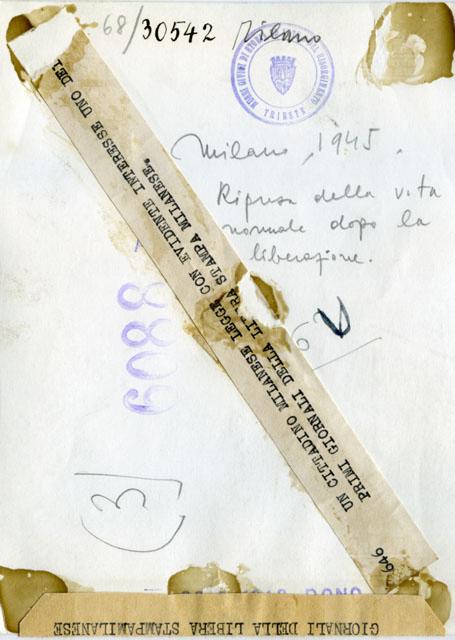 68/30542 Milano
MUSEI CIVICI DI STORIA
TRIESTE
Milano, 1945.
Ripresa della vita
normale dopo la
liberazione.
UN CITTADINO MILANESE LEGGE CON EVIDENTE INTERESSE UNO DEI
PRIMI GIORNALI DELLA LIBERA STAMPA MILANESE.
646
6088
(3)
GIORNALI DELLA LIBERA STAMPAMILANESE